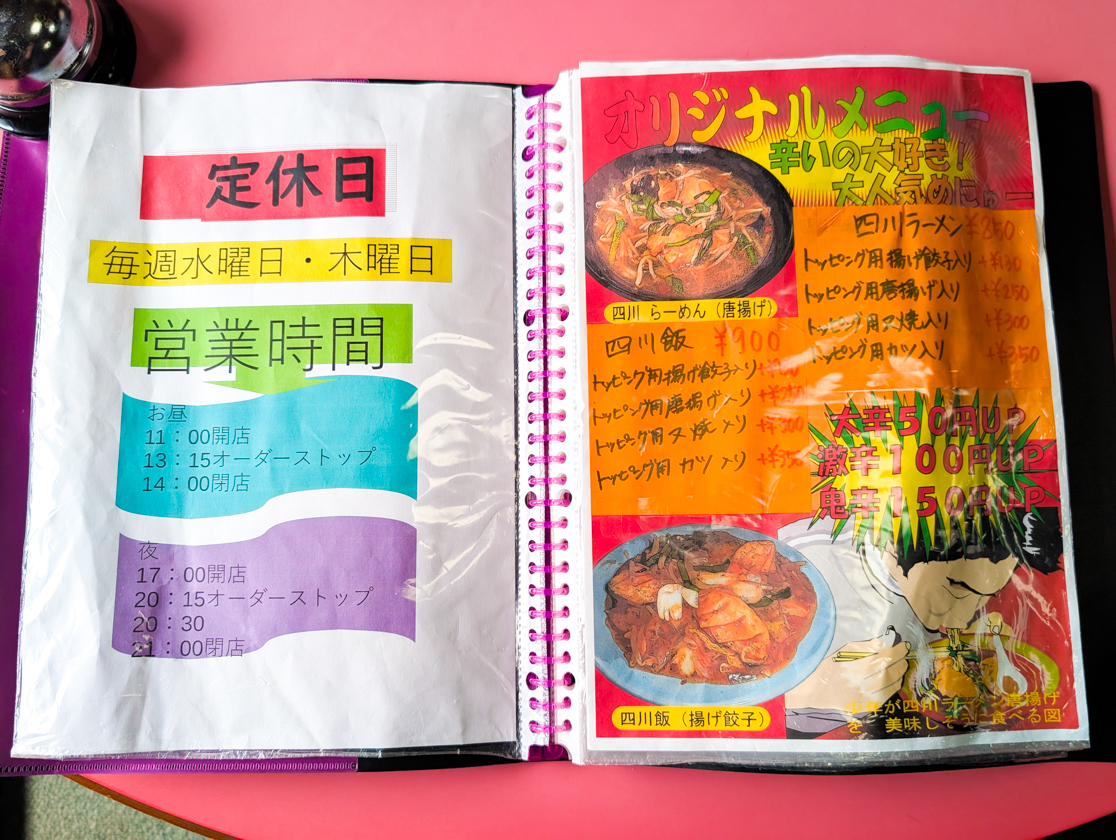 定休日
毎週水曜日・木曜日
営業時間
お昼
11：00開店
13：15オーダーストップ
14：00閉店
夜
17：00開店
20：15オーダーストップ
20：30
21：00閉店
オリジナルメニュー
辛いの大好き！
大人気めにゅー
四川 らーめん（唐揚げ）
四川ラーメン ¥850
トッピング用揚げ餃子入り
トッピング用唐揚げ入り +¥250
トッピング用叉焼入り +¥300
トッピング用カツ入り +¥350
四川飯 ¥900
トッピング用揚げ餃子入り
トッピング用唐揚げ入り
トッピング用叉焼入り +¥300
トッピング用カツ入り +¥350
大辛５０円UP
激辛１００円UP
鬼辛１５０円UP
四川飯（揚げ餃子）
が四川ラーメン唐揚げ
を 美味しそうに食べる図